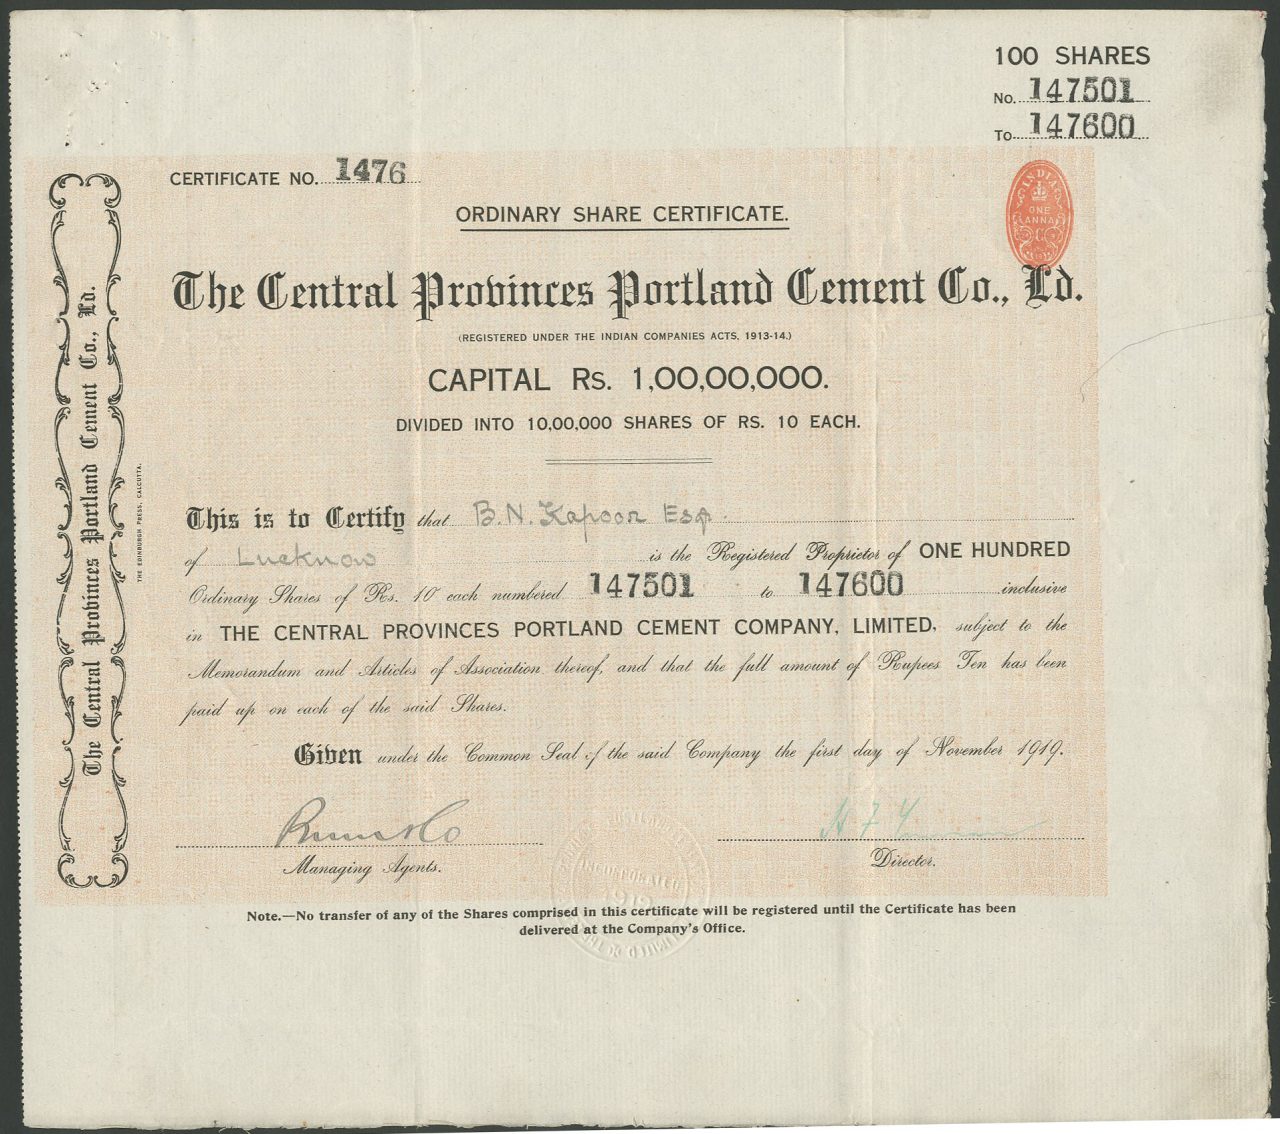 100 SHARES
No. 147501
To 147600
CERTIFICATE NO. 1476
INDIA
ONE
ANNA
ORDINARY SHARE CERTIFICATE.
The Central Provinces Portland Cement Co., Ld.
(REGISTERED UNDER THE INDIAN COMPANIES ACTS, 1913-14.)
CAPITAL Rs. 1,00,00,000.
DIVIDED INTO 10,00,000 SHARES OF RS. 10 EACH.
The Central Provinces Portland Cement Co., Ld.
THE EDINBURGH PRESS, CALCUTTA.
This is to Certify that B. N. Kapoor Esq.
of Lucknow is the Registered Proprietor of ONE HUNDRED
Ordinary Shares of Rs. 10 each numbered 147501 to 147600 inclusive
in THE CENTRAL PROVINCES PORTLAND CEMENT COMPANY, LIMITED, subject to the
Memorandum and Articles of Association thereof, and that the full amount of Rupees Ten has been
paid up on each of the said Shares.
Given under the Common Seal of the said Company the first day of November 1919.
Managing Agents.
Director.
INCORPORATED
1919
Note.—No transfer of any of the Shares comprised in this certificate will be registered until the Certificate has been
delivered at the Company's Office.